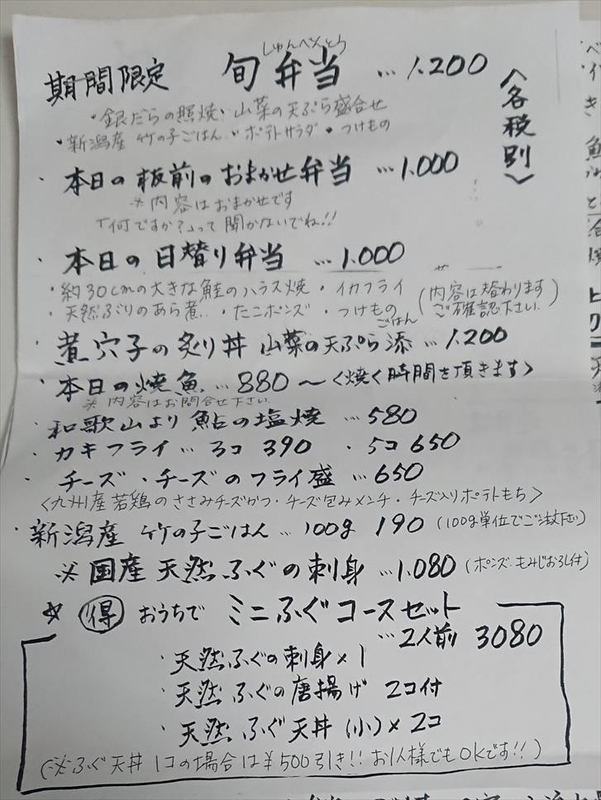 しゅんべんとう
期間限定 旬弁当 …1.200
〈各税別〉
・銀だらの照焼・山菜の天ぷら盛合せ
・新潟産 竹の子ごはん・ポテトサラダ・つけもの
・本日の板前のおまかせ弁当 …1.000
※内容はおまかせです
「何ですか?」って聞かないでね!!
・本日の日替り弁当 …1.000
・約30cmの大きな鮭のハラス焼・イカフライ
・天然ぶりのあら煮・たこポンズ・つけもの ごはん
(内容は替わります ご確認下さい)
・煮穴子の炙り丼 山菜の天ぷら添 …1.200
・本日の焼魚 …880〜〈焼く時間を頂きます〉
※内容はお問合せ下さい
・和歌山より 鮎の塩焼 …580
・カキフライ …3コ 390 ・5コ 650
・チーズ・チーズのフライ盛 …650
〈九州産若鶏のささみチーズかつ・チーズ包みメンチ・チーズ入りポテトもち〉
・新潟産 竹の子ごはん …100g 190 (100g単位でご注文下さい)
・※国産天然ふぐの刺身 …1.080 (ポンズ・もみじおろし付)
☆ 得 おうちで ミニふぐコースセット
…2人前 3080
・天然ふぐの刺身×1
・天然ふぐの唐揚げ 2コ付
・天然ふぐ天丼(小)×2コ
(※ふぐ天丼1コの場合は¥500引き!! お1人様でもOKです!!)